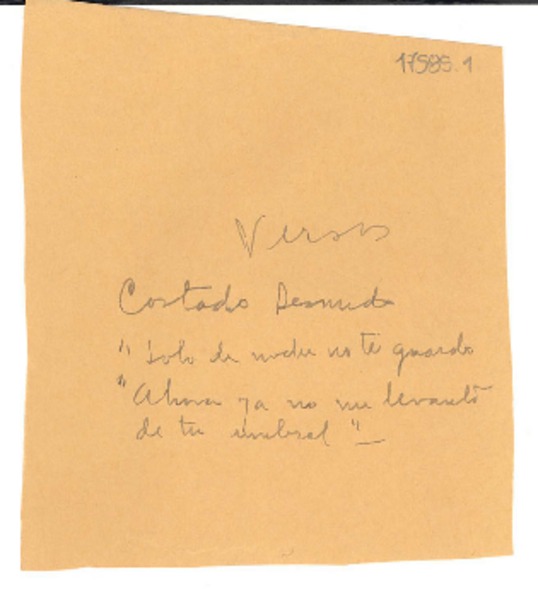 17595.1
Versos
Costado Desnudo
" Solo de noche no te guardo
"Ahora ya no me levantó
de tu umbral"_